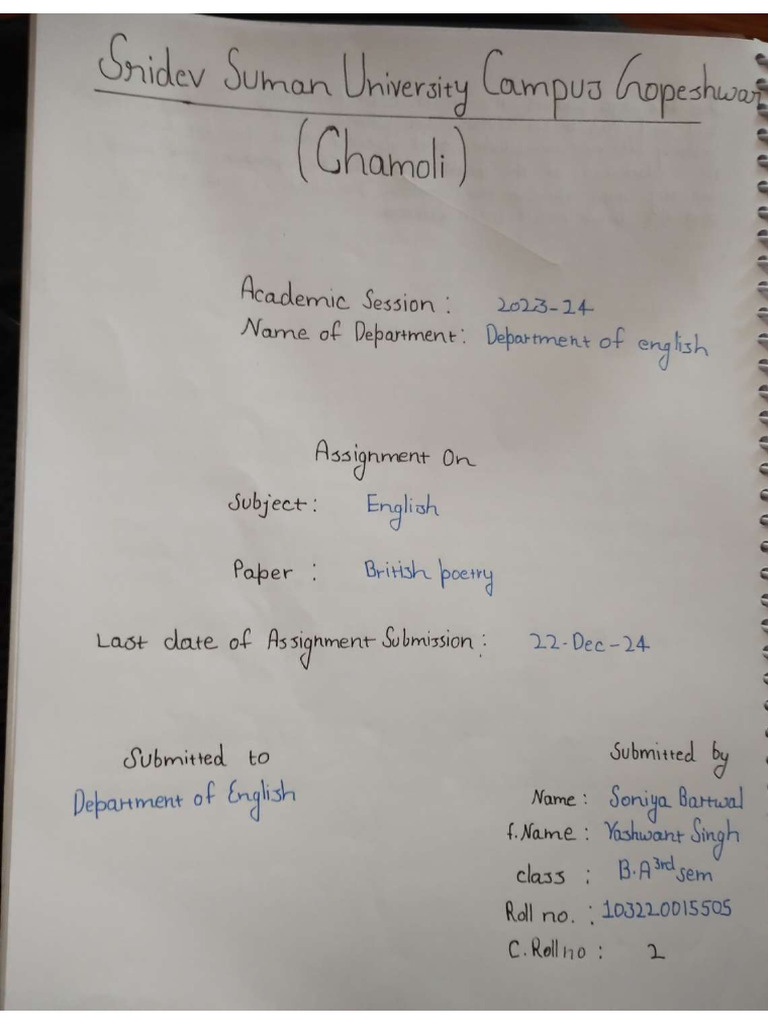 Sridev Suman University Campus Gopeshwar
(Chamoli)
Academic Session : 2023-24
Name of Department: Department of english
Assignment On
Subject : English
Paper : British poetry
Last date of Assignment Submission : 22-Dec-24
Submitted to
Department of English
Submitted by
Name : Soniya Bartwal
f.Name : Yashwant Singh
class : B.A 3rd sem
Roll no. : 103220015505
C. Roll no : 2